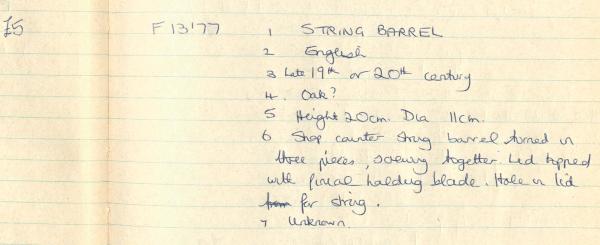 £5 F13'77 1 STRING BARREL
2 English
3 Late 19th or 20th century
4. Oak?
5 Height 20cm. Dia 11cm.
6 Shop counter string barrel turned in
three pieces, screwing together. Lid topped
with finial holding blade. Hole in lid
from for string.
7 Unknown